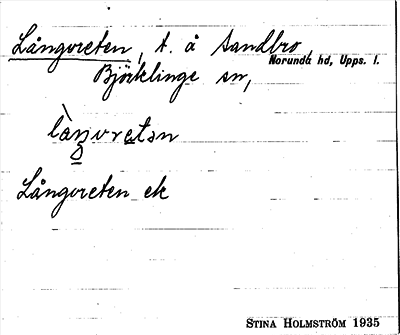 Långvreten, t. å Sandbro,
Norunda hd, Upps. l.
Björklinge sn,
làŋvretən
Långvreten ek
STINA HOLMSTRÖM 1935